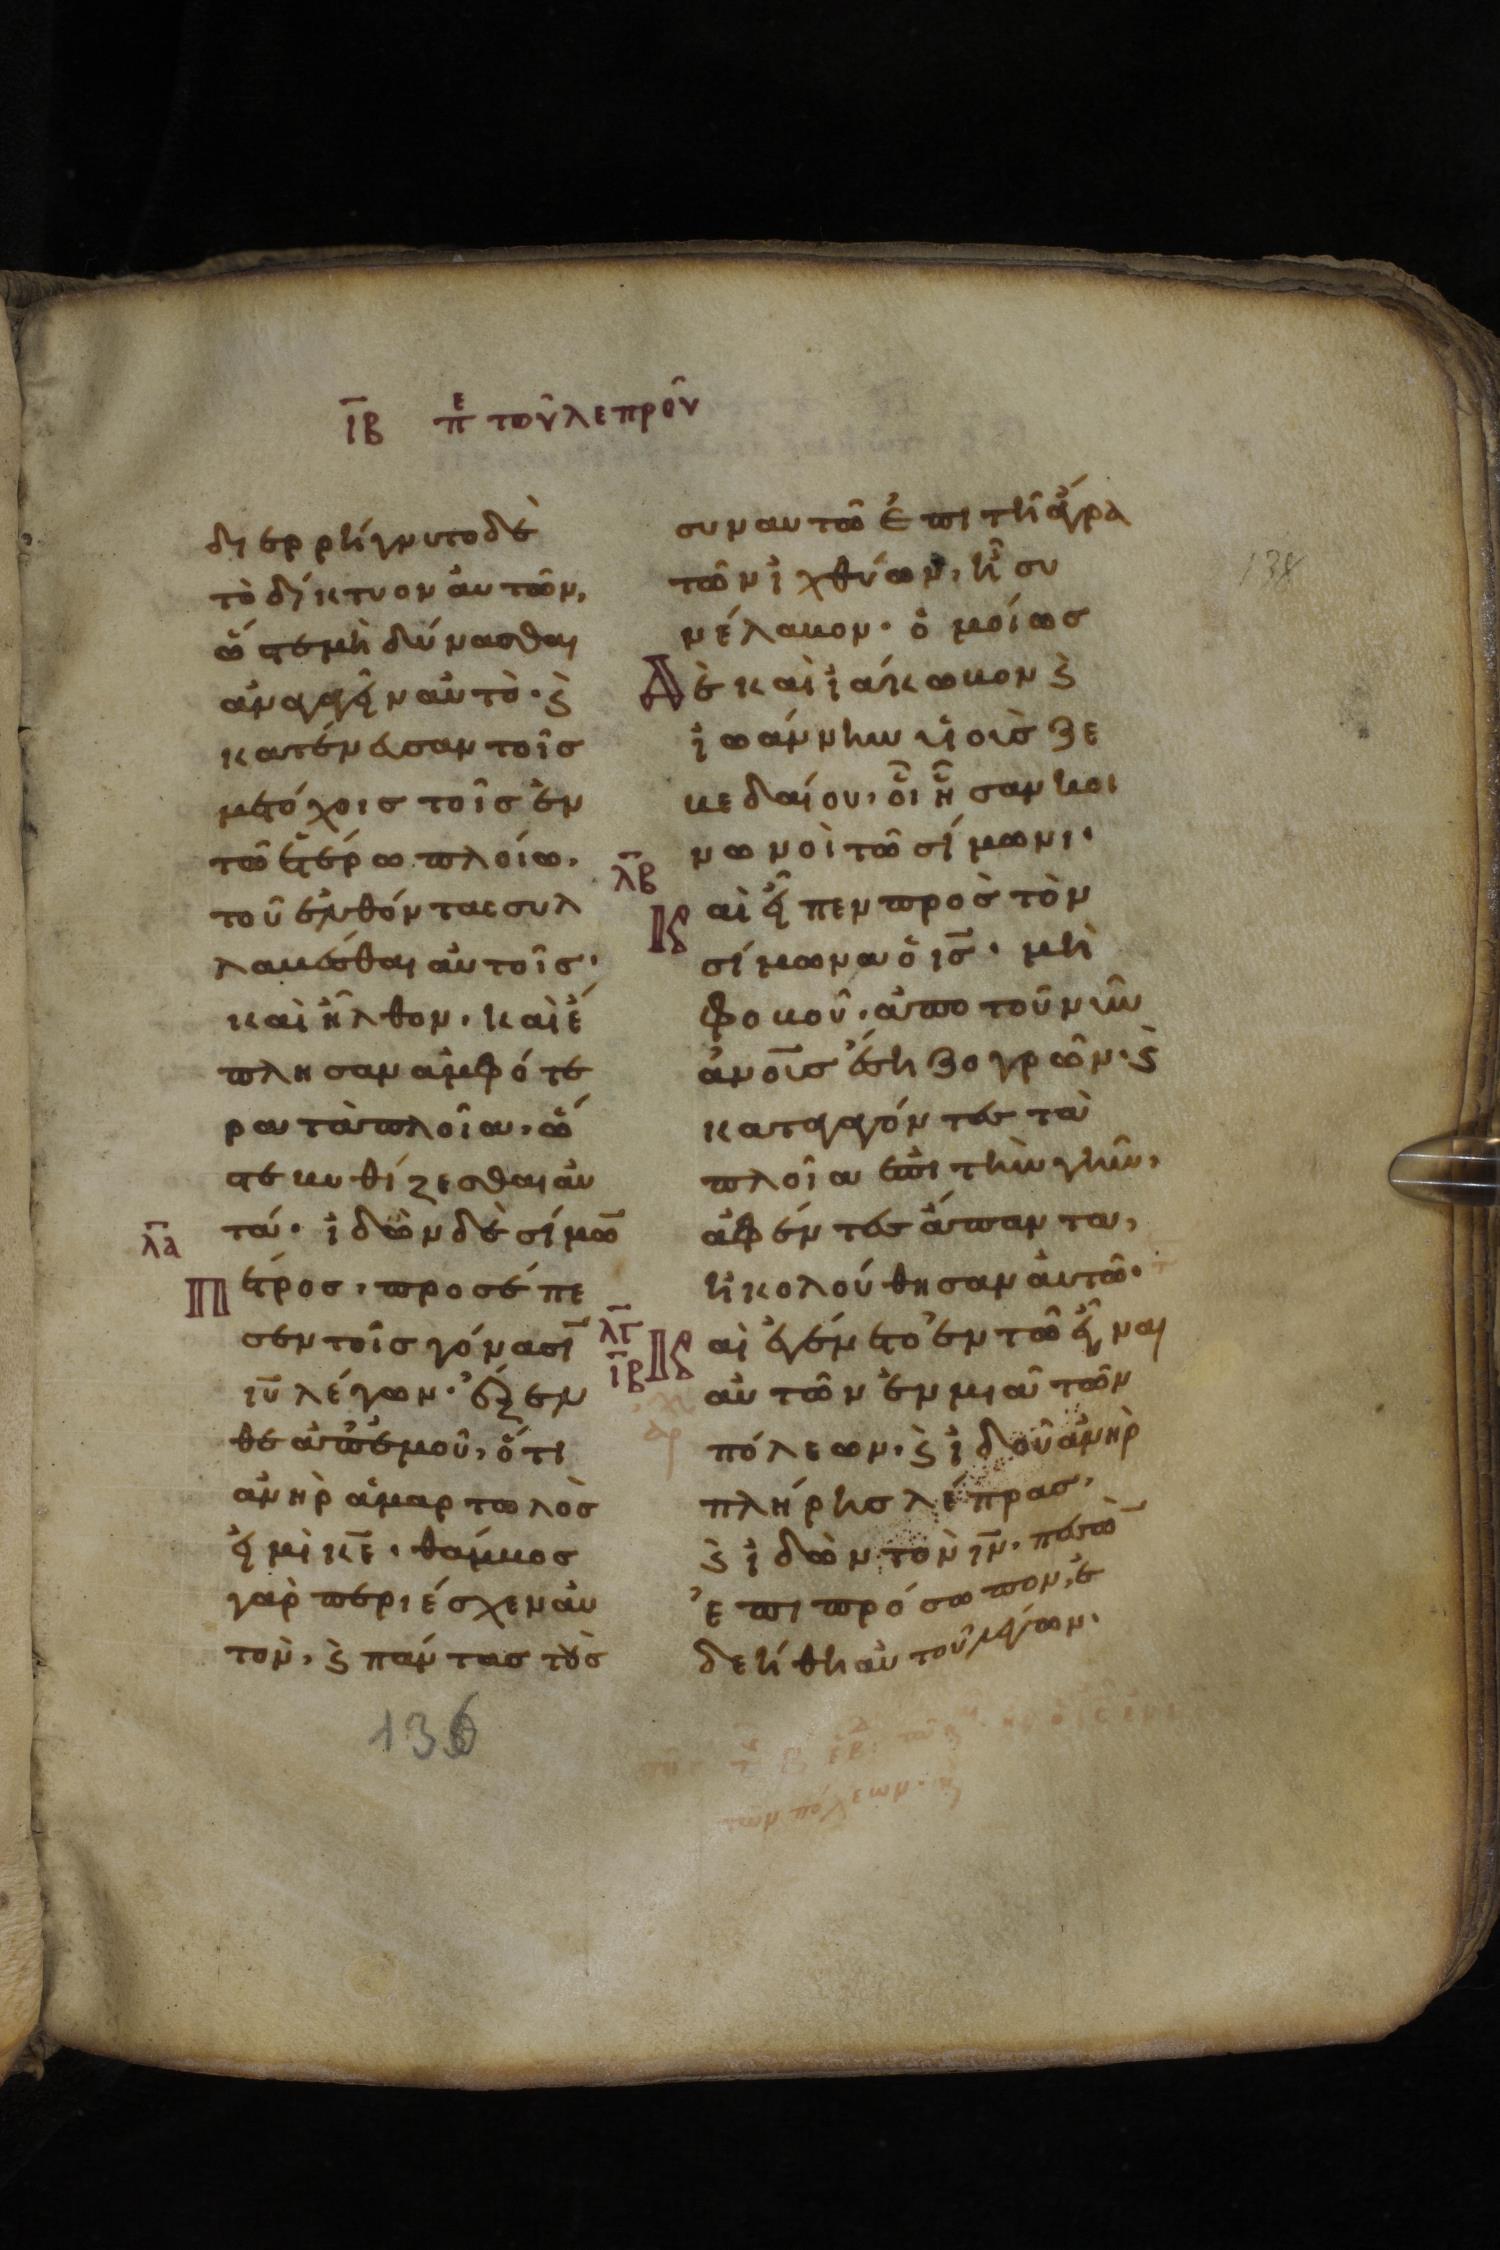 ιβ πε τοῦ λεπροῦ
διερρήγνυτο δὲ
τὸ δίκτυον αὐτῶν,
ὥστε μὴ δύνασθαι
ἀναγαγεῖν αὐτὸ· ϗ
κατένευσαν τοῖσ
μετόχοισ τοῖσ ἐν
τῶ ἑτέρω πλοίω,
τοῦ ἐλθόντασ συλ
λαβέσθαι αὐτοῖσ·
καὶ ἦλθον· καὶ ἔ
πλησαν ἀμφότε
ρα τὰ πλοῖα, ὥ
στε βυθίζεσθαι αὐ
τά· ἰδὼν δὲ σίμω̅
λα
Πέτροσ, προσέπε
σεν τοῖσ γόνασῑ
ιῡ λέγων· ἔξελ
θε ἀπ' ἐμοῦ, ὅτι
ἀνὴρ ἁμαρτωλὸσ
εἰμὶ κ̅ε̅· θάμβοσ
γὰρ περιέσχεν αὐ
τὸν, ϗ πάντασ τοὺσ
136
σὺν αὐτῶ ἐπὶ τῆ ἄγρα
τῶν ἰχθύων, ἧ συ
νέλαβον· ὁμοίωσ
Δὲ καὶ ἰάκωβον ϗ
ἰωάννην υἱοὺσ ζε
βεδαίου, οἳ ἦσαν κοι
νωνοὶ τῶ σίμωνι·
λβ
Καὶ εἶπεν πρὸσ τὸν
σίμωνα ὁ ι̅σ̅· μὴ
φοβοῦ· ἀπὸ τοῦ νῦν
ἀν̅ουσ ἔση ζογρῶν· ϗ
καταγαγόντεσ τὰ
πλοῖα ἐπὶ τὴν γῆν,
ἀφέντεσ ἅπαντα,
ἠκολούθησαν αὐτῶ·
λγ
ιβ
Καὶ ἐγένετο ἐν τῶ εἶναι
αὐτὸν ἐν μιᾶ τῶν
πόλεων· ϗ ἰδοὺ ἀνὴρ
πλήρησ λέπρασ,
ϗ ἰδὼν τὸν ι̅ν̅· πεσὼ̅
ἐπὶ πρόσωπον, ἐ
δεήθη αὐτοῦ λέγων·
138